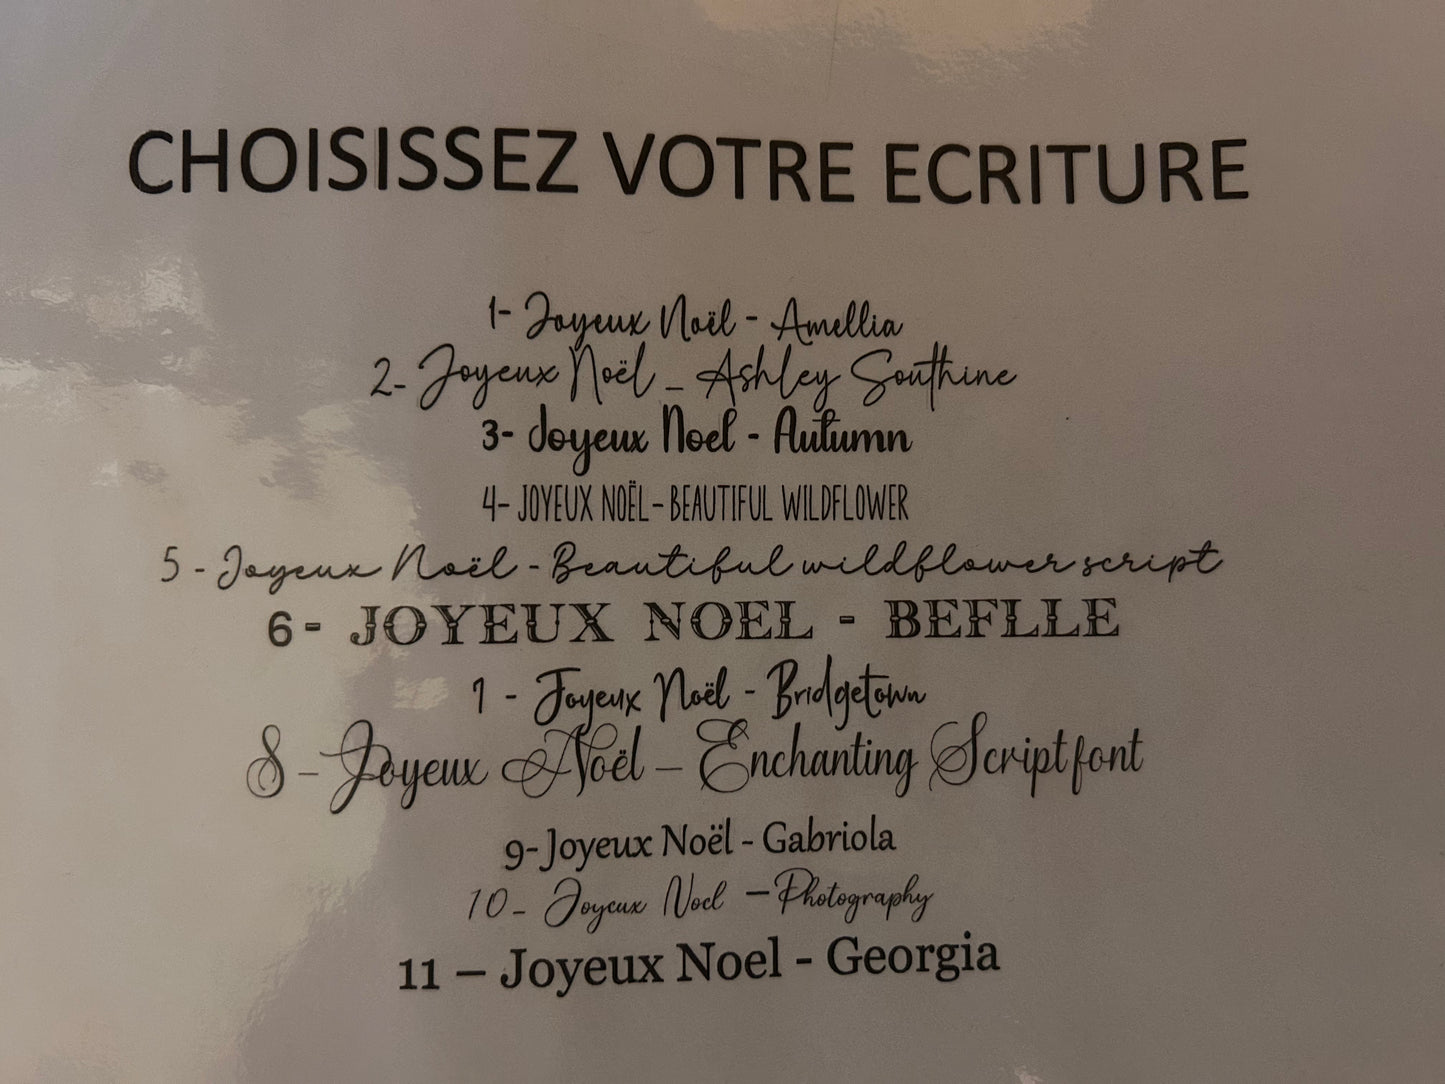 CHOISISSEZ VOTRE ECRITURE
1- Joyeux Noël - Amellia
2- Joyeux Noël _ Ashley Southine
3- Joyeux Noel - Autumn
4- JOYEUX NOËL - BEAUTIFUL WILDFLOWER
5 - Joyeux Noël - Beautiful wildflower script
6- JOYEUX NOEL - BEFLLE
7 - Joyeux Noël - Bridgetown
8 – Joyeux Noël – Enchanting Script font
9- Joyeux Noël - Gabriola
10 – Joyeux Noel – Photography
11 – Joyeux Noel - Georgia